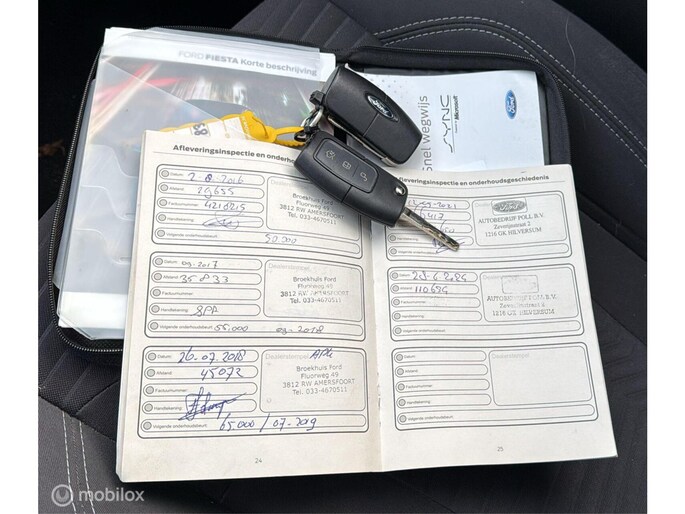 FORD FIESTA Korte beschrijving
Snel wegwijs
SYNC
Microsoft
Ford
Ford
Afleveringsinspectie en onderhoudsgeschiedenis
Datum:
Afstand:
Factuurnummer:
Handtekening:
Volgende onderhoudsbeurt: 50.000
Broekhuis Ford
Fluorweg 49
3812 RW AMERSFOORT
Tel. 033-4670511
Datum: 09.2017
Afstand: 35833
Factuurnummer:
Handtekening:
Volgende onderhoudsbeurt: 55.000 09-2018
Dealerstempel
Broekhuis Ford
Fluorweg 49
3812 RW AMERSFOORT
Tel. 033-4670511
Datum: 26.07.2018
Afstand: 45072
Factuurnummer:
Handtekening:
Volgende onderhoudsbeurt: 65.000 / 07-2019
Dealerstempel
Broekhuis Ford
Fluorweg 49
3812 RW AMERSFOORT
Tel. 033-4670511
24
Afleveringsinspectie en onderhoudsgeschiedenis
Handtekening:
Volgende onderhoudsbeurt:
AUTOBEDRIJF POLL B.V.
Zeverijnstraat 2
1216 GK HILVERSUM
Datum:
Afstand: 110684
Factuurnummer:
Handtekening:
Volgende onderhoudsbeurt:
Dealerstempel
AUTOBEDRIJF POLL B.V.
Zeverijnstraat 2
1216 GK HILVERSUM
Datum:
Afstand:
Factuurnummer:
Handtekening:
Volgende onderhoudsbeurt:
Dealerstempel
25
mobilox